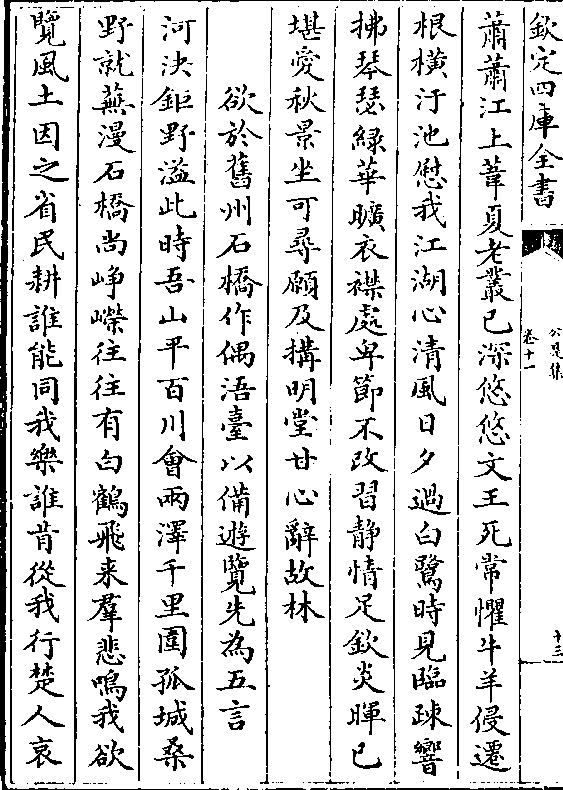 欽定四庫全書
公是集
卷十一
十三
蕭蕭江上葦夏老叢已深悠悠文王死常懼牛羊侵遷
根橫汙池慰我江湖心清風日夕過白鷺時見臨疎響
拂琴瑟緑華曠衣襟處卑節不改習静情足欽炎暉已
堪愛秋景坐可尋願及搆明堂甘心辭故林
欲於舊州石橋作偶浯臺以備遊覽先為五言
河決鉅野溢此時吾山平百川會兩澤千里圍孤城桑
野就蕪漫石橋尚崢嶸往往有白鶴飛来羣悲鳴我欲
覽風土因之省民耕誰能同我樂誰肯從我行楚人哀